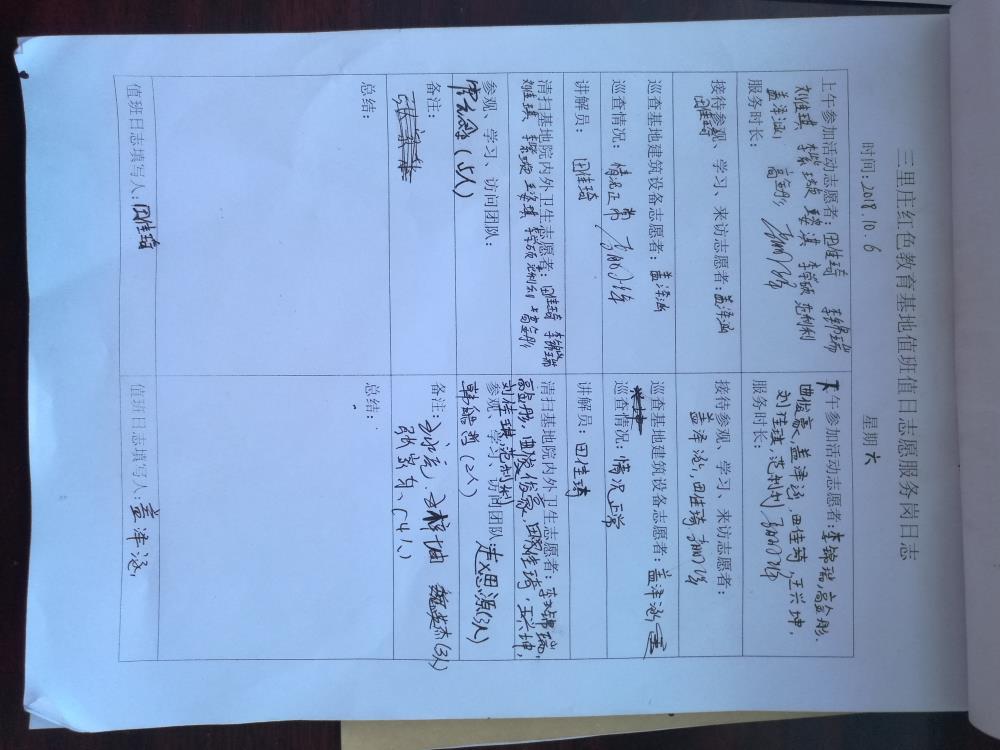 三里庄红色教育基地值班值日志愿服务岗日志
时间：2018.10.6 星期六
上午参加活动志愿者：田佳琦 李锦瑞
刘佳琪 李紫璇 李字硕 范利利
盖泽涵 高金彤
服务时长：
接待参观、学习、来访志愿者：盖泽涵
田佳琦
巡查基地建筑设备志愿者：盖泽涵
巡查情况：情况正常
讲解员：田佳琦
清扫基地院内外卫生志愿者：田佳琦 李锦瑞
刘佳琪 李紫璇 李字硕 高金彤
参观、学习、访问团队：
（5人）
备注：
总结：
值班日志填写人：田佳琦
下午参加活动志愿者：李锦瑞，高金彤，
盖泽涵，田佳琦，王兴坤，
刘佳琪，范利利
服务时长：
接待参观、学习、来访志愿者：
盖泽涵，田佳琦
巡查基地建筑设备志愿者：盖泽涵
巡查情况：情况正常
讲解员：田佳琦
清扫基地院内外卫生志愿者：李锦瑞，
高金彤，田佳琦，王兴坤，
刘佳琪，范利利
参观、学习、访问团队：赵思源（3人）
（2人）
备注： 魏英杰（3人）
（4人）
总结：
值班日志填写人：盖泽涵